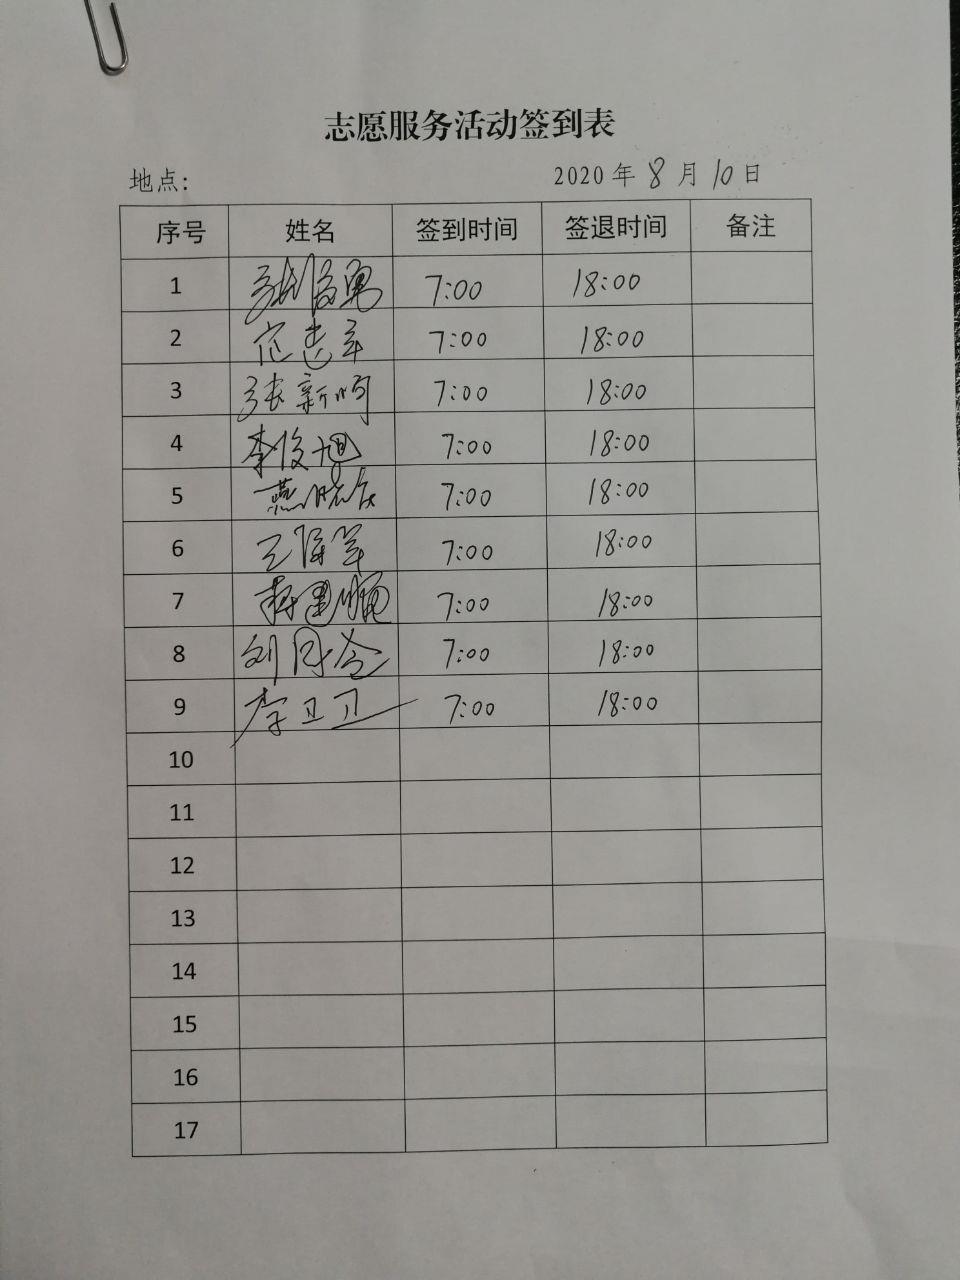 志愿服务活动签到表
地点: 2020 年 8 月 10 日
序号 姓名 签到时间 签退时间 备注
1 7:00 18:00
2 7:00 18:00
3 张新明 7:00 18:00
4 李俊旭 7:00 18:00
5 7:00 18:00
6 7:00 18:00
7 7:00 18:00
8 7:00 18:00
9 李卫卫 7:00 18:00
10
11
12
13
14
15
16
17